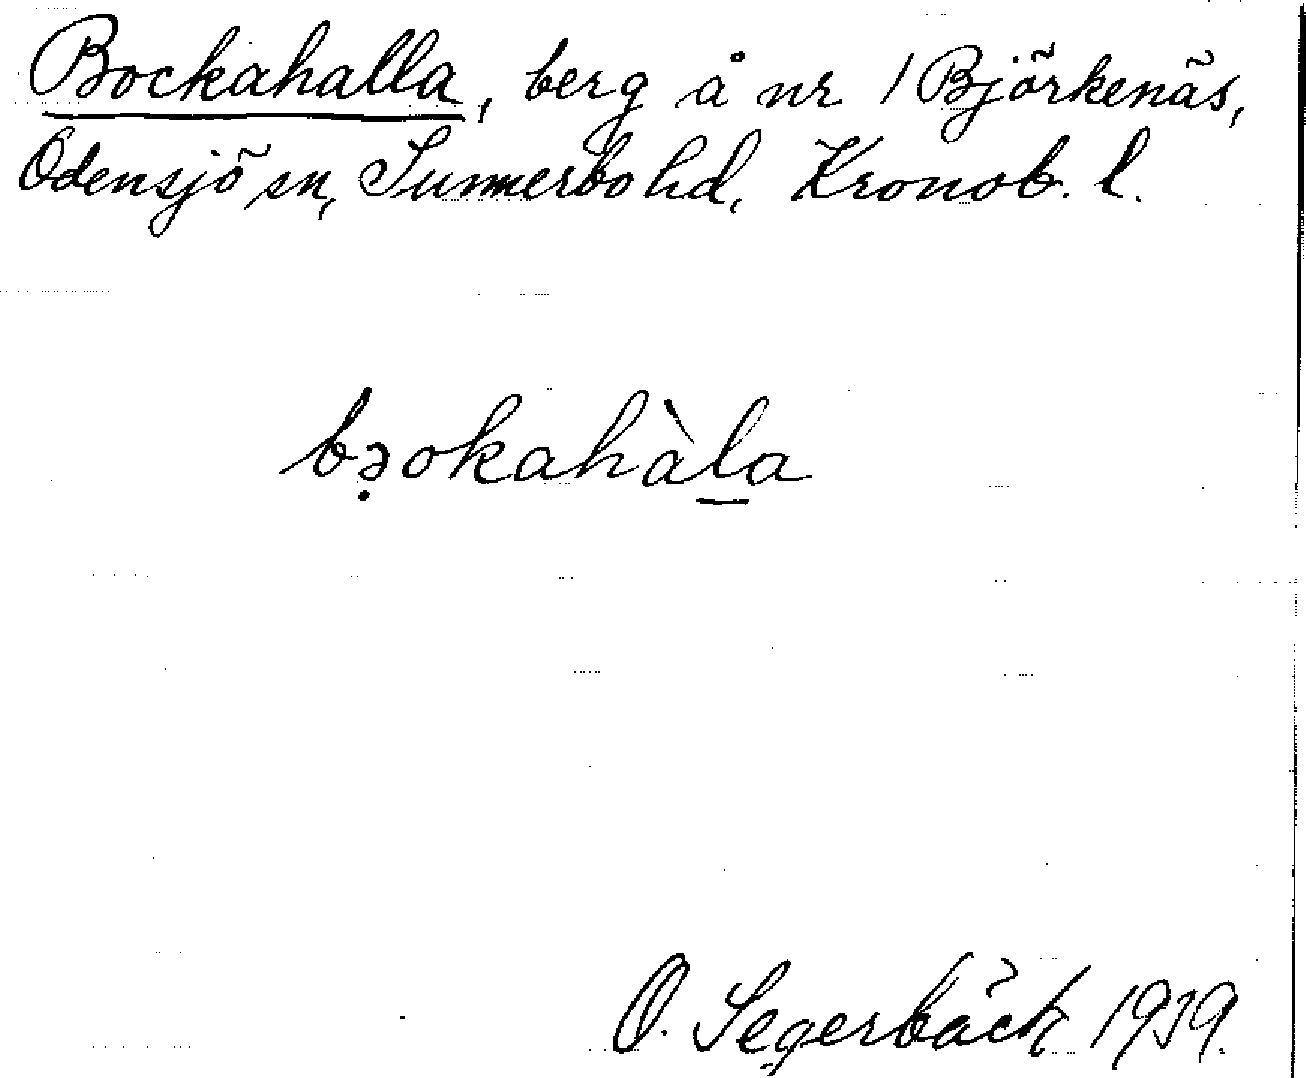 Bockahalla, berg å nr 1 Björkenäs,
Odensjö sn, Sunnerbo hd, Kronob. l.
bə̣okahàl̲a
O. Segerbäck 1939.